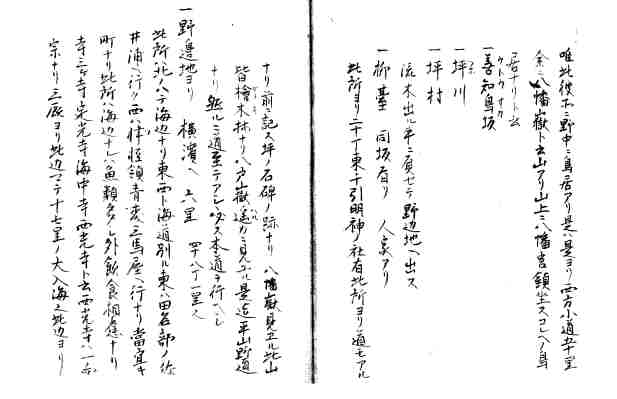 唯此後ニ野中ニ鳥居アリ是ハ是ヨリ西方小道五十里
余ニ八幡嶽ト云山アリ山上ニ八幡宮鎮坐スコレヘノ鳥
居ナリト云
ウトウサカ
一善知鳥坂
一坪川
一坪村
流木出ル年ニ寄セテ野辺地ヘ出ス
一柳臺 同坂有リ 人家アリ
此所ヨリ二十丁東千引明神ノ社有此所ヨリ道モアル
ナリ前ニ記ス坪ノ石碑ノ跡ナリ 八幡嶽見ヱル此山
皆檜木林ナリ八戸山嶽遙カニ見ユル是迄平山野道
ナリ 然ルニ道至テアレ 本道ヲ行ヘシ
一野邊地ヨリ 横濱ヘ 六里 四十八丁一里
此所北ノハテ海辺ナリ東西ト海道別ル東ハ田名部ノ
井浦ヘ行ク西ハ津軽領青森三馬屋ヘ行ナリ當宜キ
町ナリ此所ハ海辺ナレハ魚類多シ外飲食相應ナリ
寺三ケ寺 光寺海中寺西光寺ト云西光寺ハ一
宗ナリ三厩ヨリ此辺マテ十七里ノ大入海也此辺ヨリ